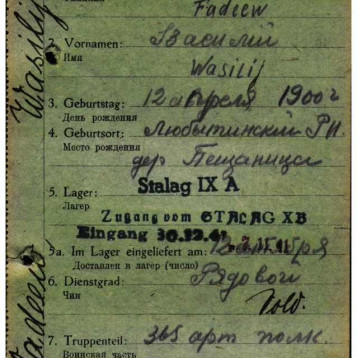 Fadeew
2. Vornamen: Василий
Имя
Wasilij
3. Geburtstag: 12 апреля 1900 г
День рождения
4. Geburtsort: Любытинский Р-Н.
Место рождения
дер Пещаница
5. Lager: Stalag IX A
Лагер
Zugang vom STALAG XB
Eingang 30.12.41
5a. Im Lager eingeliefert am:
Доставлен в лагер (число)
6. Dienstgrad: Рядовой
Чин
Sold.
7. Truppenteil: 365 арт полк.
Воинская часть
Wasilij
Fadeew